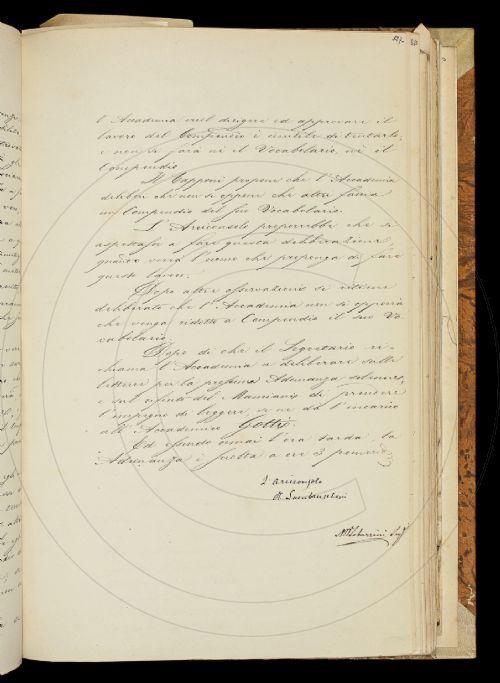 l'Accademia vuol dirigere ed approvare il
lavoro del Compendio è inutile di tentarlo,
e neppur farà nè il Vocabolario, nè il
Compendio.
Il Capponi propone che l'Accademia
deliberi che non si oppone che altri faccia
un Compendio del suo Vocabolario.
L'Arciconsolo preferirebbe che si
aspettasse a fare questa deliberazione,
quando verrà l'uomo che proponga di fare
questo lavoro.
Dopo altre osservazioni si ritiene
deliberato che l'Accademia non si opporrà
che venga ridotto a Compendio il suo Vo-
cabolario.
Dopo di che il Segretario ri-
chiama l'Accademia a deliberare sulle
letture per la prossima Adunanza solenne,
e sul rifiuto del Mamiani di prendere
l'impegno di leggere, se ne dà l'incarico
all'Accademico Gotti.
Ed essendo omai l'ora tarda, la
Adunanza è sciolta a ore 3 pomerid.
L'Arciconsolo
R. Lambruschini
M. Tabarrini Seg.